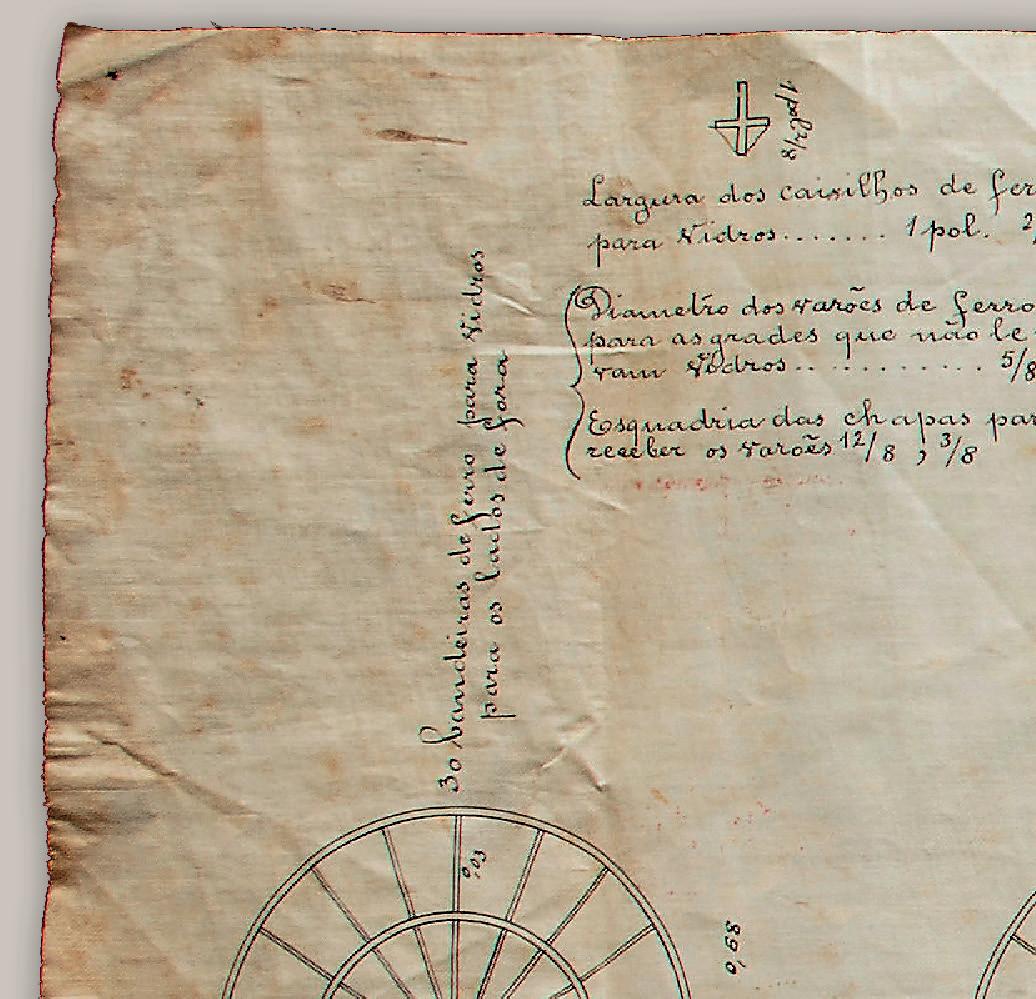 1 pol. 2/8
Largura dos caixilhos de fer
para Vidros....... 1 pol. 2/
Diametro dos varões de ferro
para as grades que não le-
vam Vidros.............. 5/8
Esquadria das chapas par
receber os varões 12/8 ; 3/8
30 bandeiras de ferro para Vidros
para os lados de fora
0,68